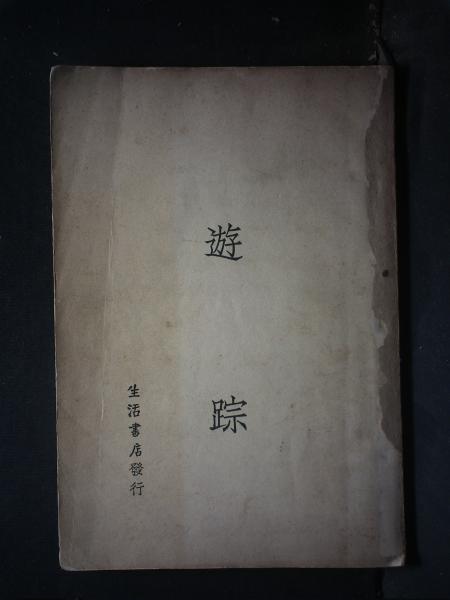 遊踪
生活書店發行